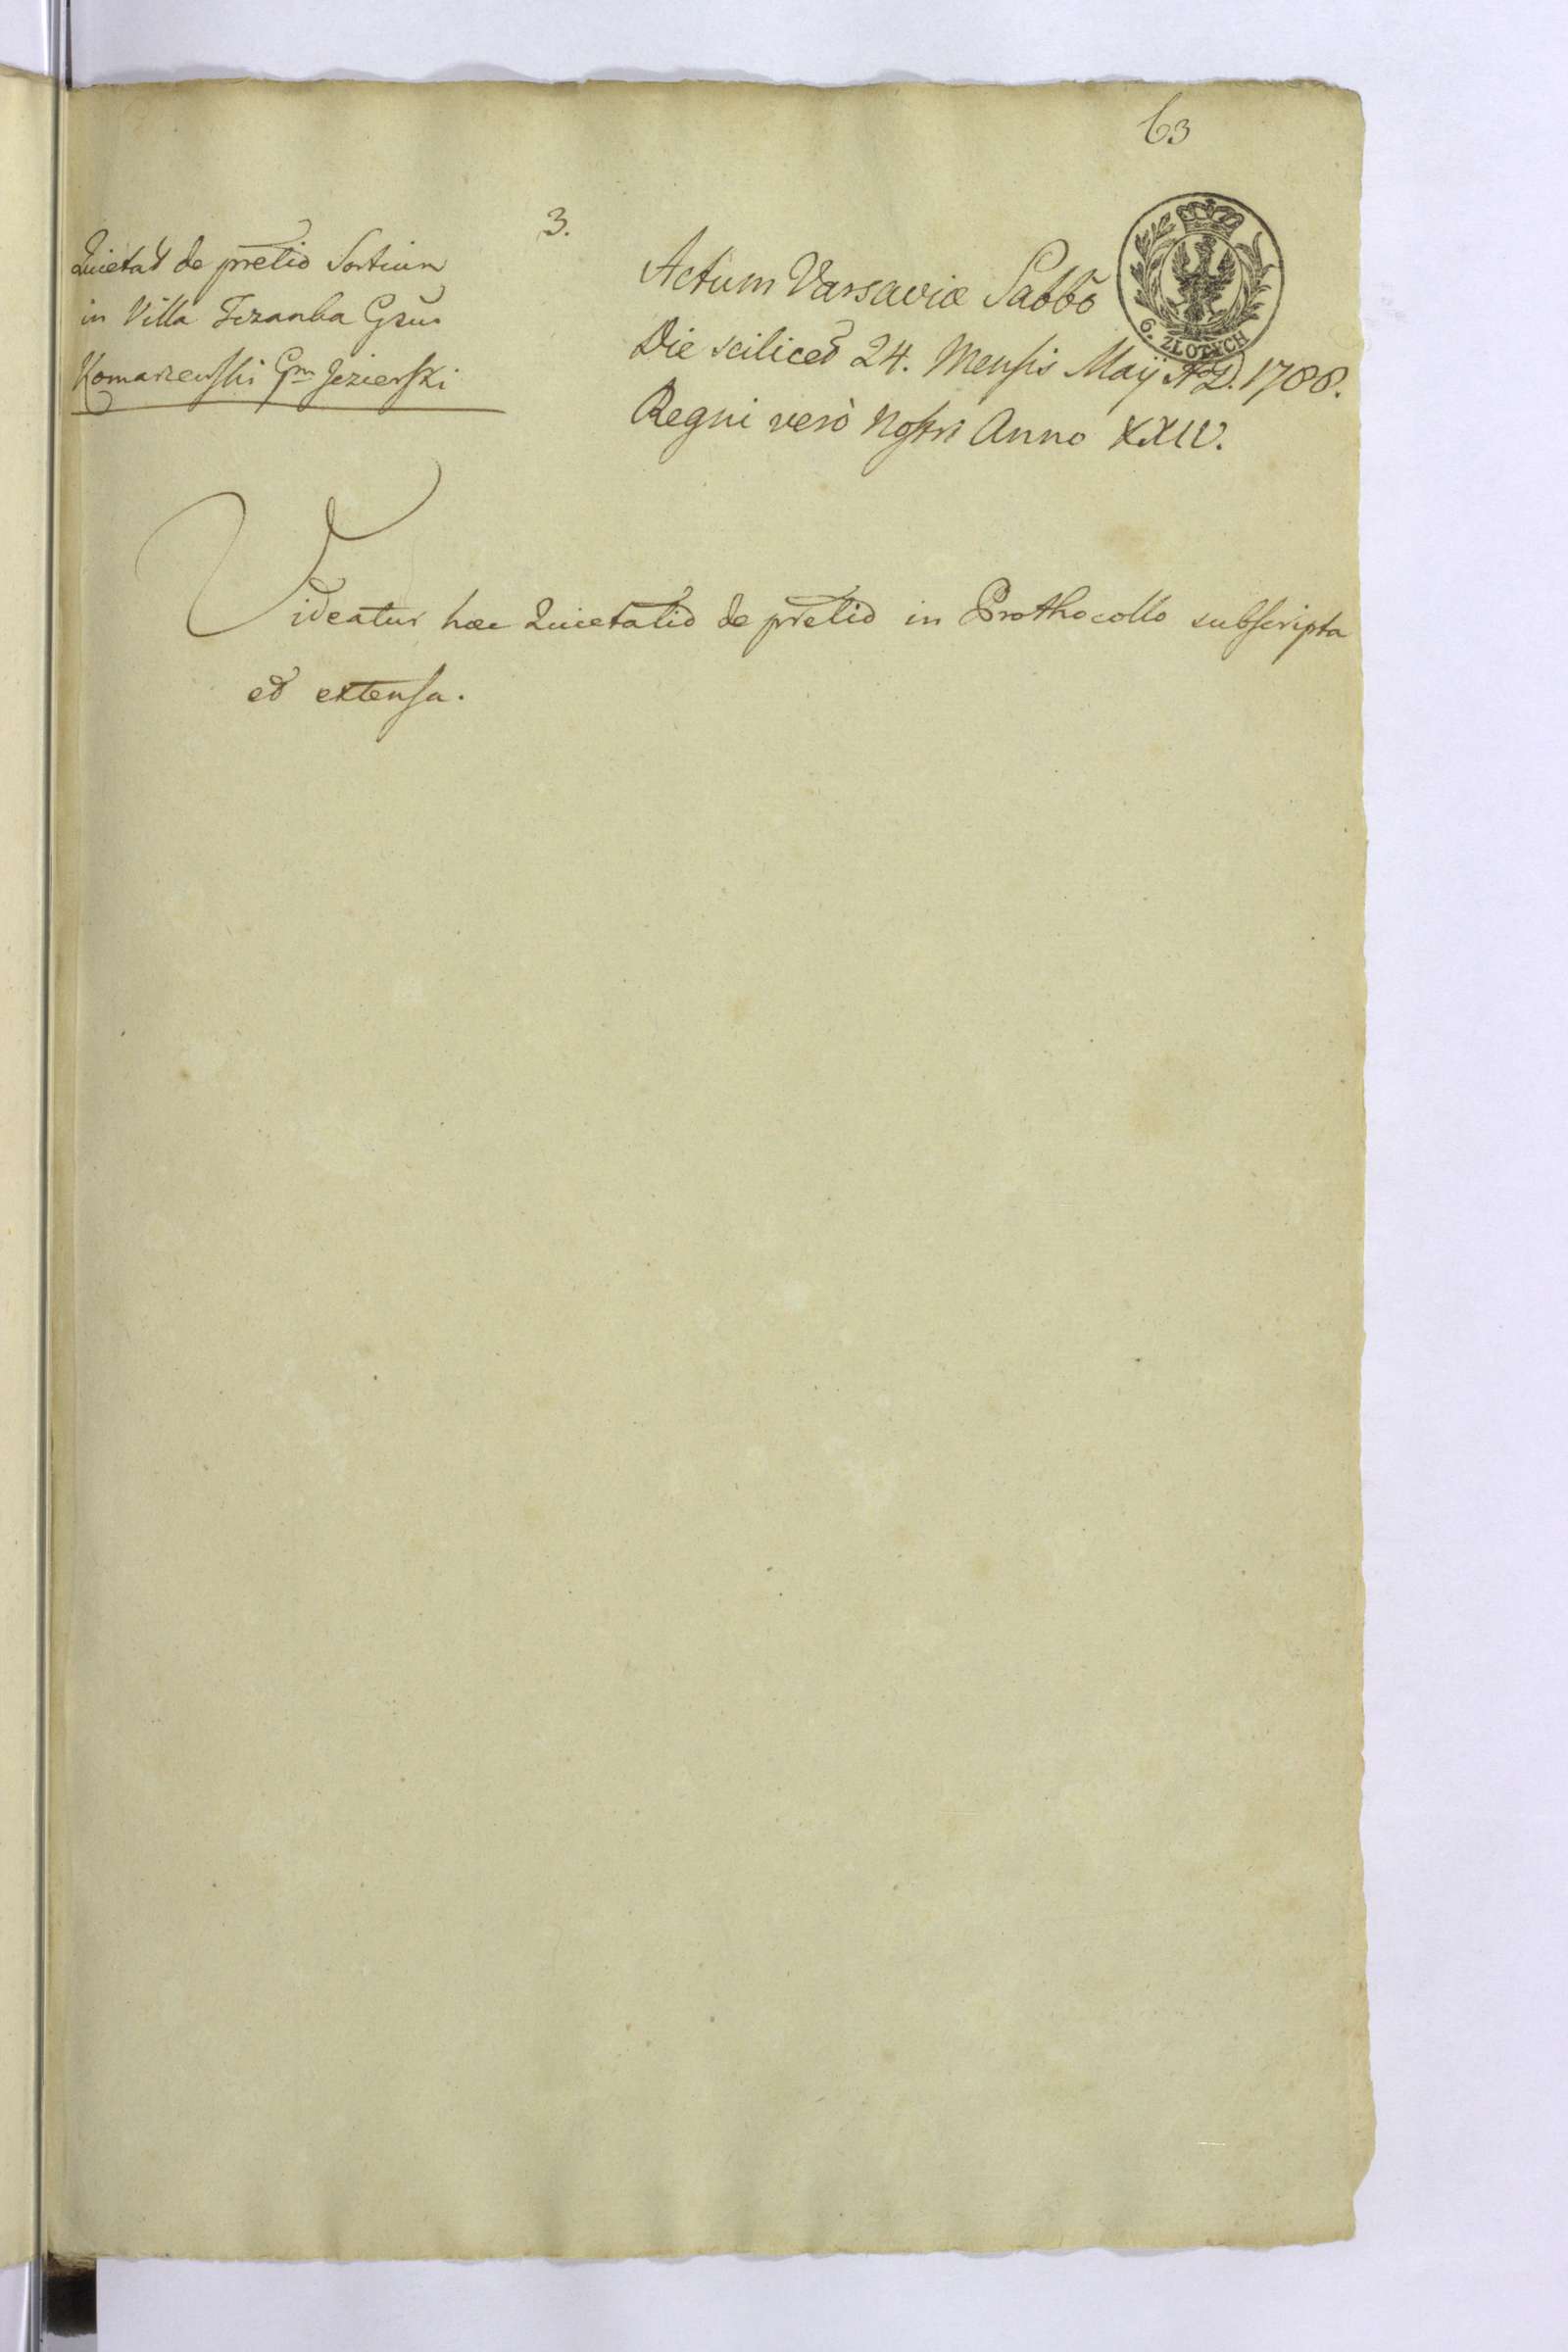 63
3.
Quietat de pretio Sortium
in Villa Gsus
Komarzewski Gm Jezierski
Actum Varsaviæ Sabbō
Die scilicet 24. Mensis Maÿ A.D. 1788.
Regni verò Nostri Anno XXIV.
6. ZŁOTYCH
Videatur hæc Quietatio de pretio in Prothocollo subscripta
et extensa.